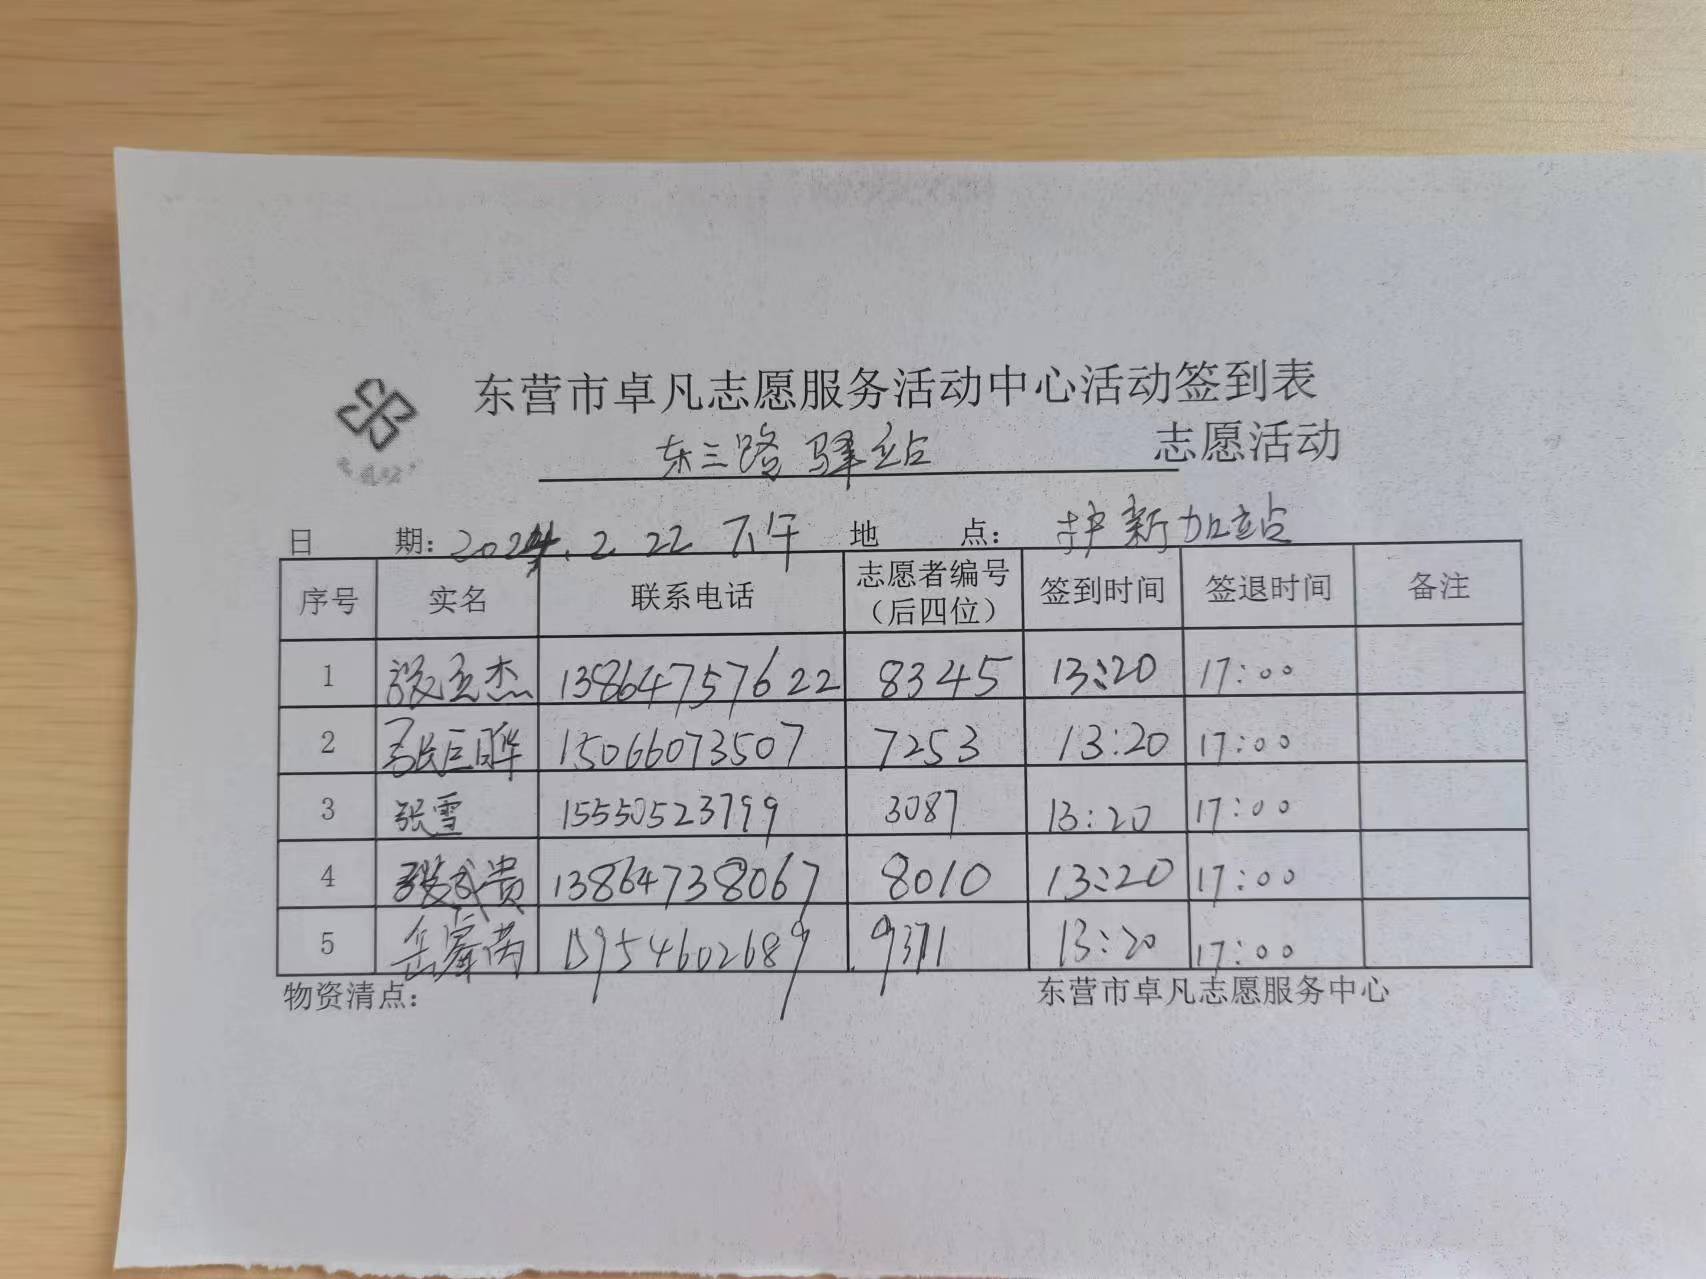 东营市卓凡志愿服务活动中心活动签到表
东三路驿站 志愿活动
日 期：2024.2 22 下午 地 点： 护新加站
序号 实名 联系电话 志愿者编号（后四位） 签到时间 签退时间 备注
1 张玉杰 13864757622 8345 13:20 17:00
2 15066073507 7253 13:20 17:00
3 张雪 15550523799 3087 13:20 17:00
4 张武贵 13864738067 8010 13:20 17:00
5 15954602689 9371 13:20 17:00
物资清点： 东营市卓凡志愿服务中心